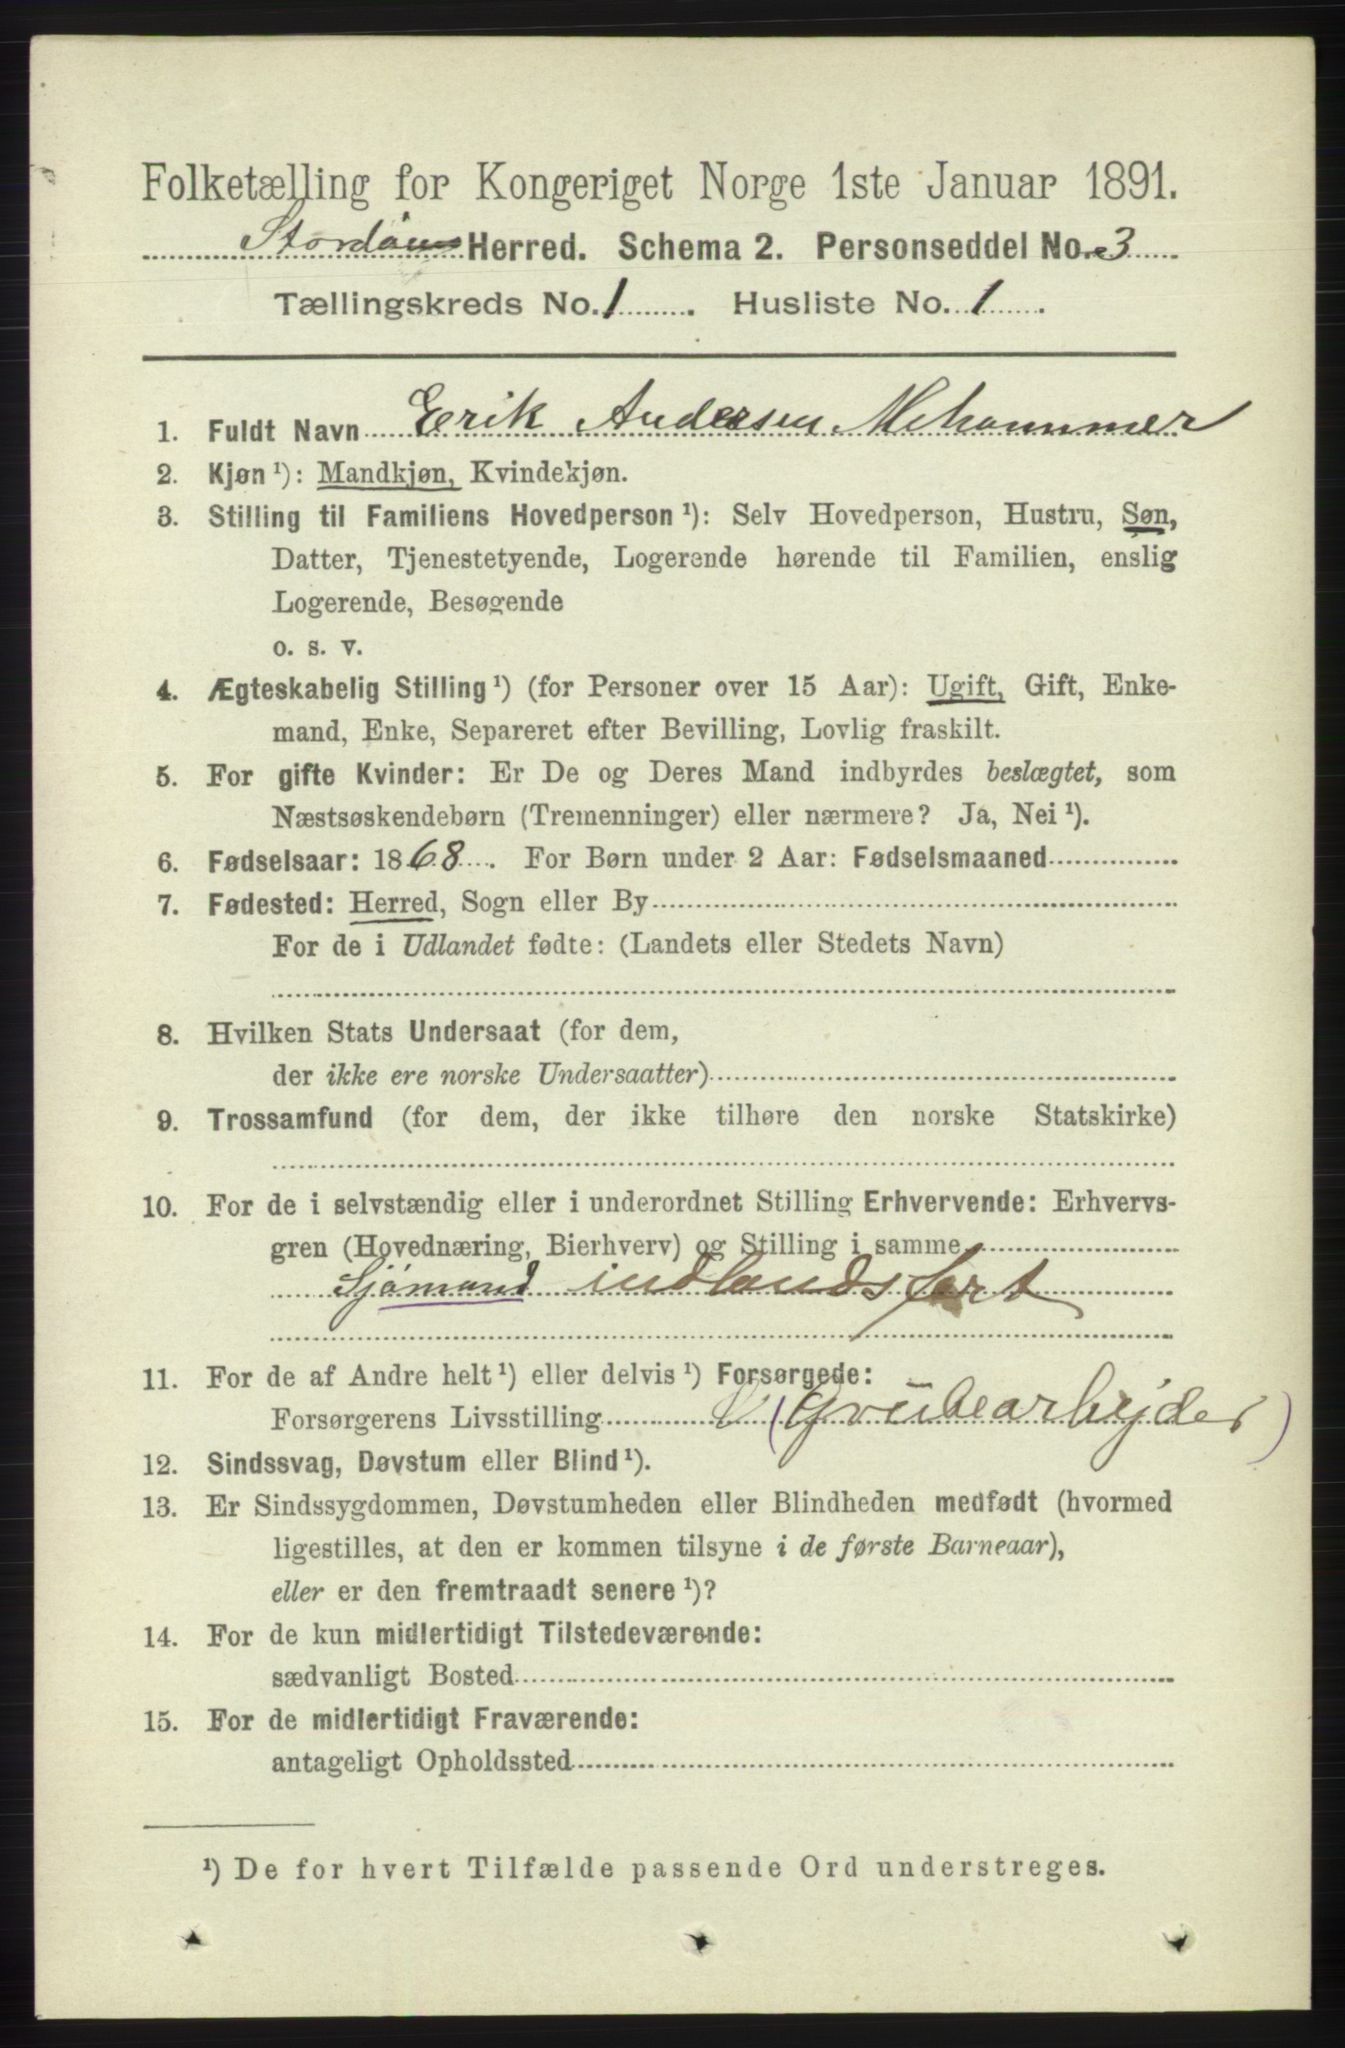 Folketælling for Kongeriget Norge 1ste Januar 1891.
Stordøens Herred. Schema 2. Personseddel No. 3
Tællingskreds No. 1. Husliste No. 1.
1. Fuldt Navn Erik Andersen Mehammer
2. Kjøn ¹): Mandkjøn, Kvindekjøn.
3. Stilling til Familiens Hovedperson ¹): Selv Hovedperson, Hustru, Søn,
Datter, Tjenestetyende, Logerende hørende til Familien, enslig
Logerende, Besøgende
o. s. v.
4. Ægteskabelig Stilling ¹) (for Personer over 15 Aar): Ugift, Gift, Enke-
mand, Enke, Separeret efter Bevilling, Lovlig fraskilt.
5. For gifte Kvinder: Er De og Deres Mand indbyrdes beslægtet, som
Næstsøskendebørn (Tremenninger) eller nærmere? Ja, Nei ¹).
6. Fødselsaar: 1868. For Børn under 2 Aar: Fødselsmaaned
7. Fødested: Herred, Sogn eller By
For de i Udlandet fødte: (Landets eller Stedets Navn)
8. Hvilken Stats Undersaat (for dem,
der ikke ere norske Undersaatter)
9. Trossamfund (for dem, der ikke tilhøre den norske Statskirke)
10. For de i selvstændig eller i underordnet Stilling Erhvervende: Erhvervs-
gren (Hovednæring, Bierhverv) og Stilling i samme
Sjømand indlandsfart
11. For de af Andre helt ¹) eller delvis ¹) Forsørgede:
Forsørgerens Livsstilling (Grubearbejder)
12. Sindssvag, Døvstum eller Blind ¹).
13. Er Sindssygdommen, Døvstumheden eller Blindheden medfødt (hvormed
ligestilles, at den er kommen tilsyne i de første Barneaar),
eller er den fremtraadt senere ¹)?
14. For de kun midlertidigt Tilstedeværende:
sædvanligt Bosted
15. For de midlertidigt Fraværende:
antageligt Opholdssted
¹) De for hvert Tilfælde passende Ord understreges.